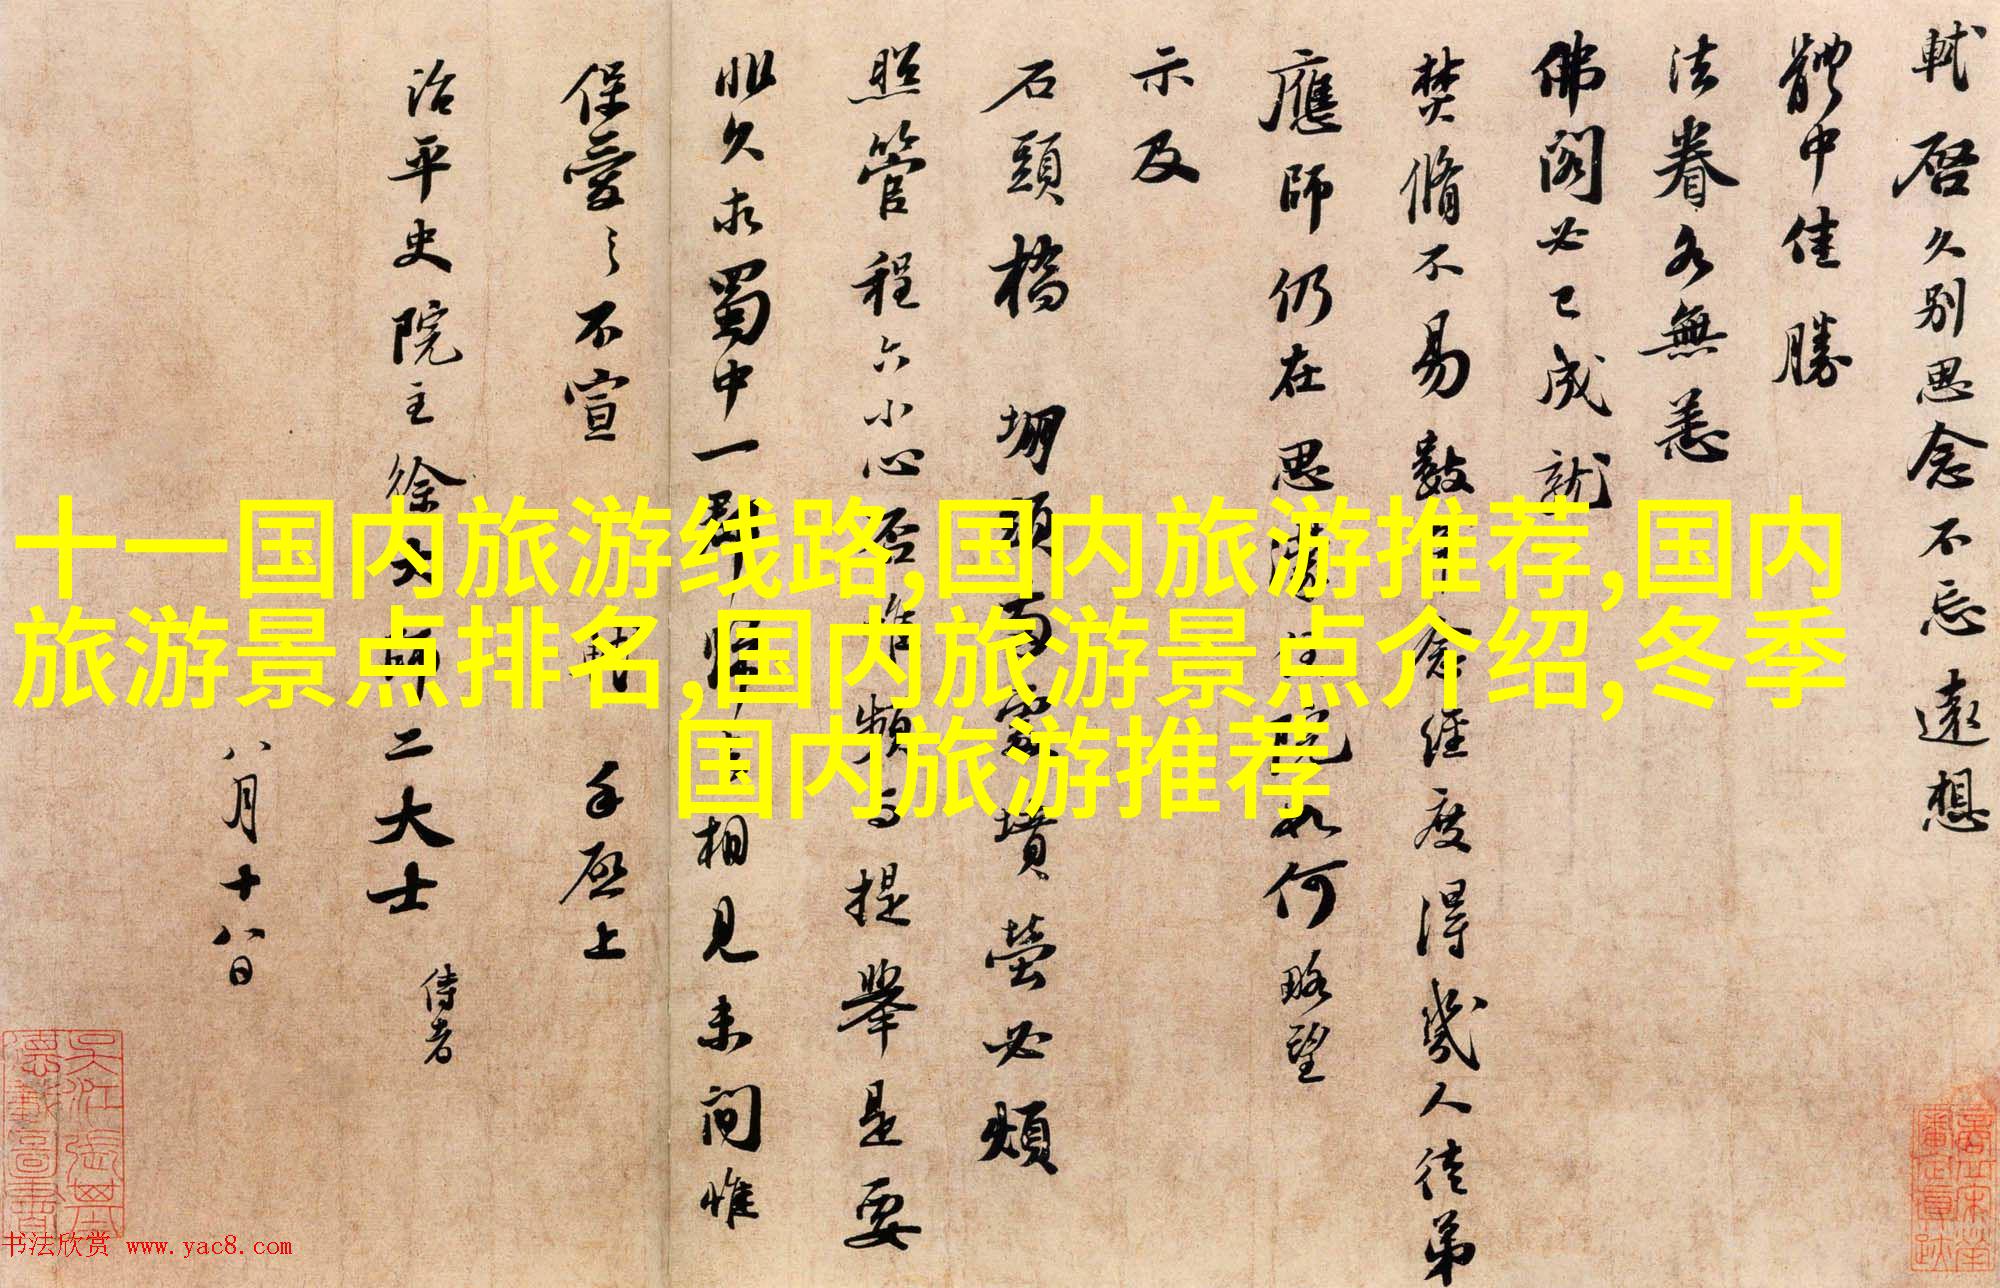 軾啓久别思念不忘遠想
體中佳勝
法眷各無恙
佛閣必已成就
焚脩不易數年念經度得幾人徒弟
應師仍在思濛住院如何略望
示及
石頭橋堋頭两處墳塋必煩
照管程六小心否惟頻与提舉是要
非久求蜀中一郡歸去相見未間惟
保愛之不宣軾手啓上
治平史院主徐大師二大士侍者
八月十八日
十一国内旅游线路,国内旅游推荐,国内
旅游景点排名,国内旅游景点介绍,冬季
国内旅游推荐
书法欣赏 www.yac8.com